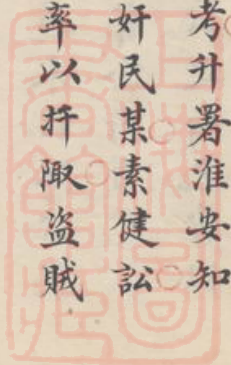 考升署淮安知
奸民某素健訟
率以扞陬盜賊